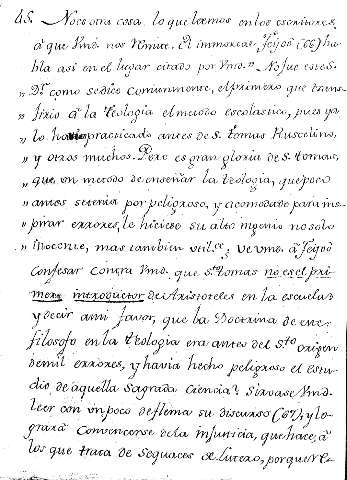 45. No es otra cosa lo que leemos en los escritores,
â que Vmd. nos remite. El immortal Feijoó (66) ha-
bla asi en el lugar citado por Vmd. " No fue este S.
" Dr. como se dice comunmente, el primero que trans-
" firió a la Teologia el metodo escolastico, pues ya
" lo practicado antes de S. Tomas Ruscelino,
" y otros muchos. Pero es gran gloria de S. Tomas,
" que un metodo de enseñar la Teologia, que poco
" antes se tenia por peligroso, y acomodado para ins-
" pirar errores, le hiciese su alto ingenio no solo
" inocente, mas tambien util. Ve Vmd. â Feijoó
confesar contra Vmd. que Sto. Tomas no es el pri-
mero introductor de Aristoteles en la escuelas
y decir a mi favor, que la Doctrina de este
filosofo en la Teologia era antes del Sto. origen
de mil errores, y havia hecho peligroso el estu-
dio de aquella Sagrada Ciencia? Sirvase Vmd.
leer con un poco de flema su discurso (67), y lo-
grará convencerse de la injusticia, que hace, â
los que trata de sequaces de Lutero, porque re-